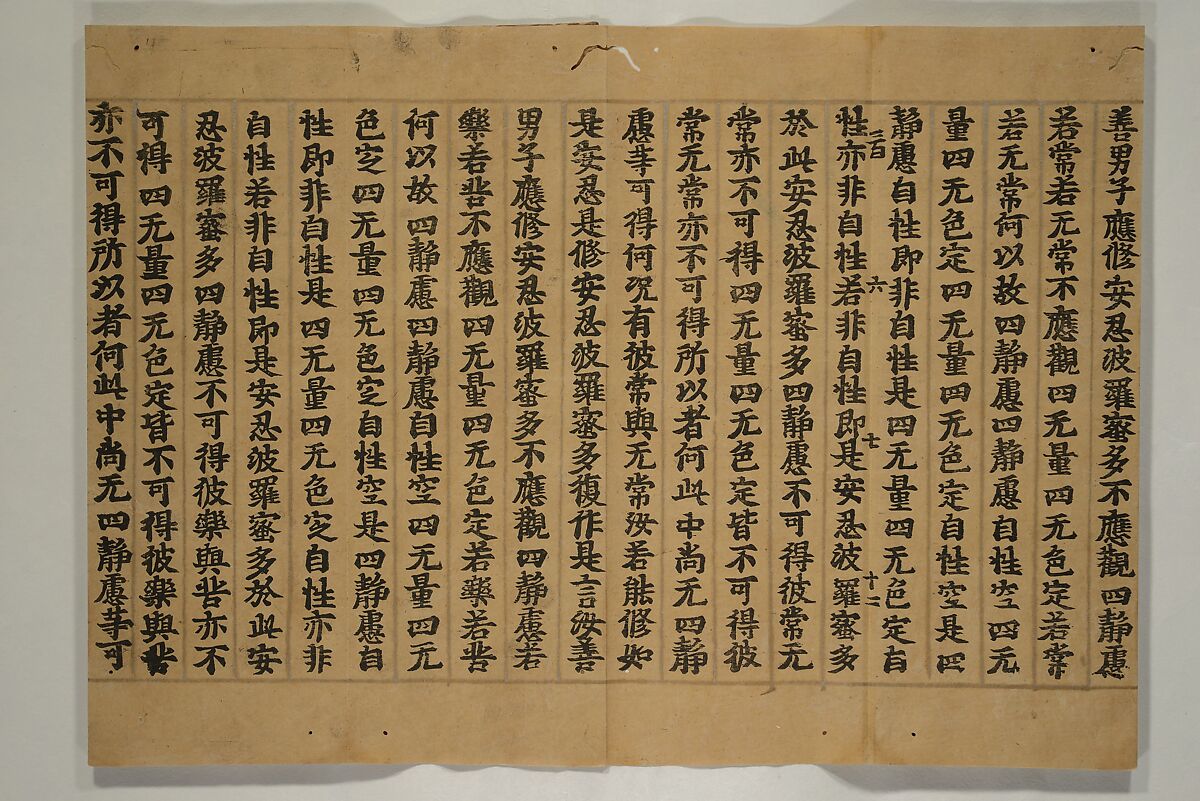 善男子應修安忍波羅蜜多不應觀四靜慮
若常若无常不應觀四无量四无色定若常
若无常何以故四靜慮四靜慮自性空四无
量四无色定四无量四无色定自性空是四
靜慮自性即非自性是四无量四无色定自
三百 六 七 十二
性亦非自性若非自性即是安忍波羅蜜多
於此安忍波羅蜜多四靜慮不可得彼常无
常亦不可得四无量四无色定皆不可得彼
常无常亦不可得所以者何此中尚无四靜
慮等可得何況有彼常與无常汝若能修如
是安忍是修安忍波羅蜜多復作是言汝善
男子應修安忍波羅蜜多不應觀四靜慮若
樂若苦不應觀四无量四无色定若樂若苦
何以故四靜慮四靜慮自性空四无量四无
色定四无量四无色定自性空是四靜慮自
性即非自性是四无量四无色定自性亦非
自性若非自性即是安忍波羅蜜多於此安
忍波羅蜜多四靜慮不可得彼樂與苦亦不
可得四无量四无色定皆不可得彼樂與苦
亦不可得所以者何此中尚无四靜慮等可